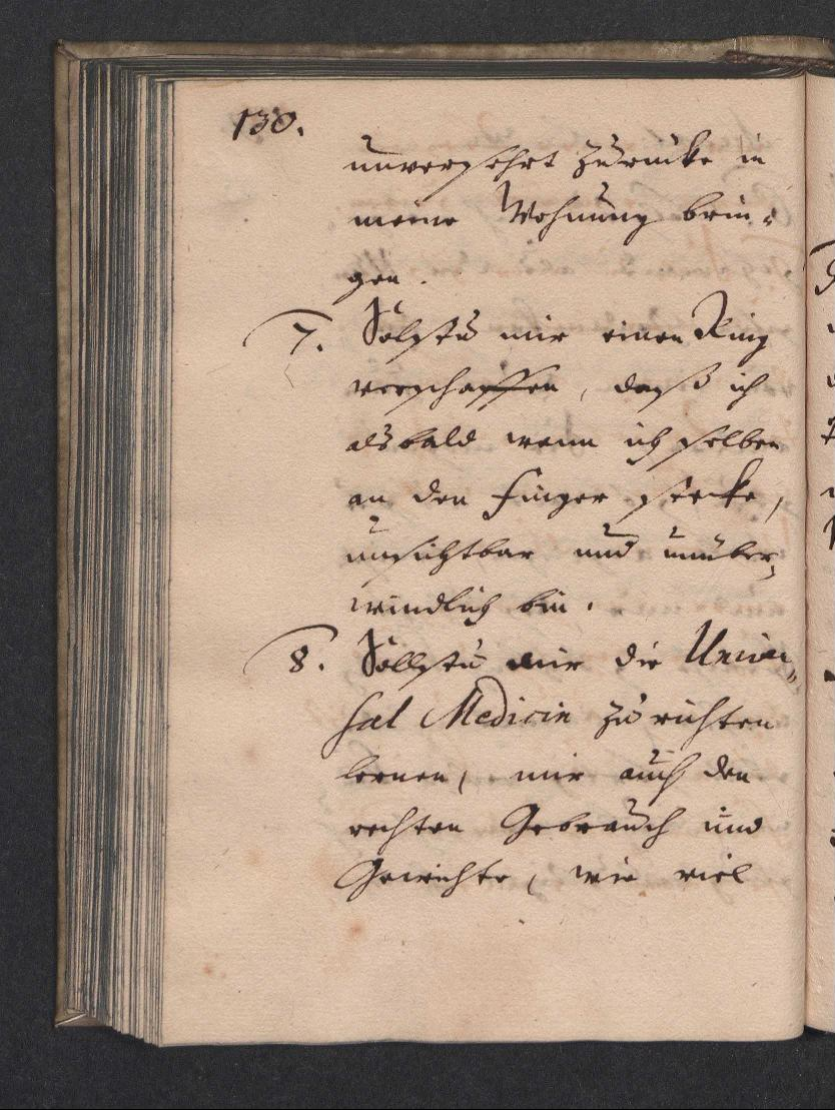 130.
unversehrt zurücke in
meine Wohnung brin-
gen.
7. Solstu mir einen Ring
verschaffen, daß ich
alsbald wenn ich selben
an den Finger stecke,
unsichtbar und unüber-
windlich bin.
8. Sollstu mir die Univer-
sal Medicin zurichten
lernen, mir auch den
rechten Gebrauch und
Gewichte, wie viel